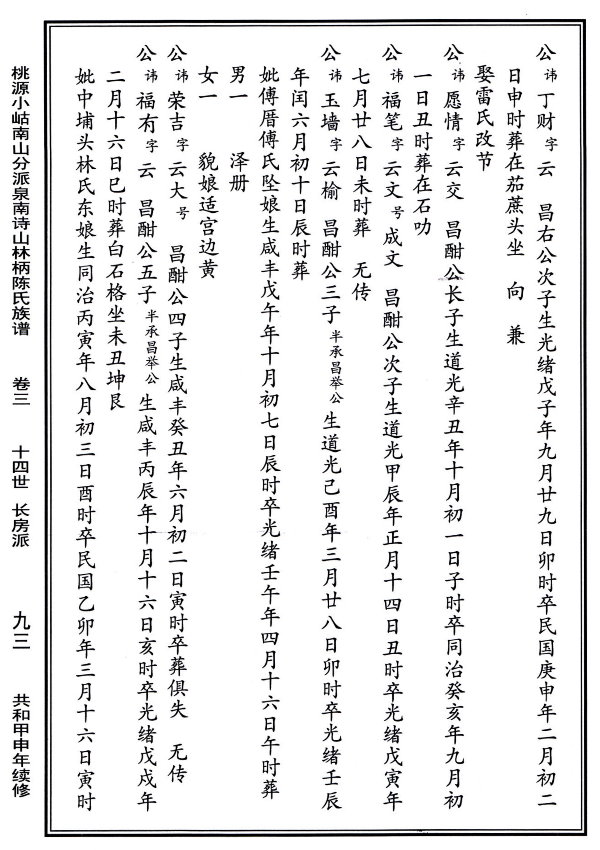 公 讳 丁财 字 云 昌右公次子生光绪戊子年九月廿九日卯时卒民国庚申年二月初二
日申时葬在茄蔗头坐 向 兼
娶雷氏改节
公 讳 愿情 字 云交 昌酣公长子生道光辛丑年十月初一日子时卒同治癸亥年九月初
一日丑时葬在石叻
公 讳 福笔 字 云文 号 成文 昌酣公次子生道光甲辰年正月十四日丑时卒光绪戊寅年
七月廿八日未时葬 无传
公 讳 玉墙 字 云榆 昌酣公三子 半承昌举公 生道光己酉年三月廿八日卯时卒光绪壬辰
年闰六月初十日辰时葬
妣傅厝傅氏坠娘生咸丰戊午年十月初七日辰时卒光绪壬午年四月十六日午时葬
男一 泽册
女一 貌娘适宫边黄
公 讳 荣吉 字 云大 号 昌酣公四子生咸丰癸丑年六月初二日寅时卒葬俱失 无传
公 讳 福有 字 云 昌酣公五子 半承昌举公 生咸丰丙辰年十月十六日亥时卒光绪戊戌年
二月十六日巳时葬白石格坐未丑坤艮
妣中埔头林氏东娘生同治丙寅年八月初三日酉时卒民国乙卯年三月十六日寅时
桃源小岵南山分派泉南诗山林柄陈氏族谱 卷三 十四世 长房派 九三 共和甲申年续修